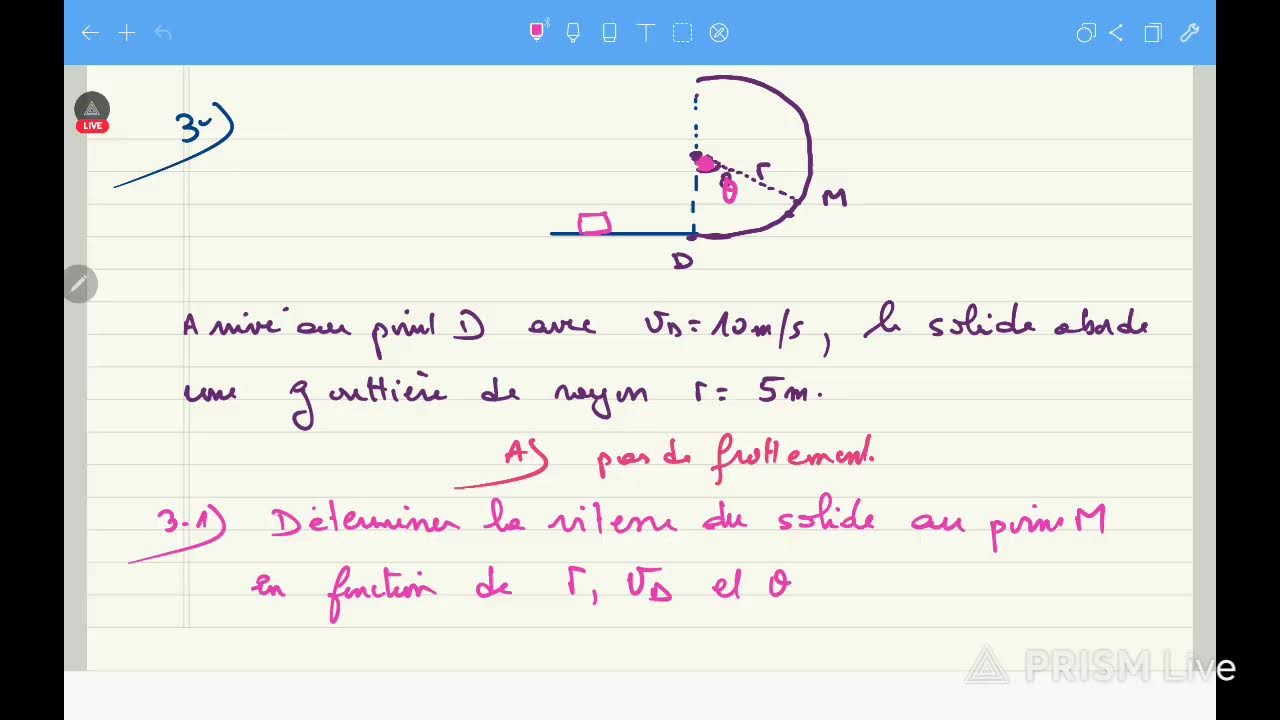 LIVE
3-)
r
θ
M
D
Arrivé au point D avec VD = 10m/s, le solide aborde
une gouttière de rayon r = 5m.
A) pas de frottement.
3-1) Déterminer la vitesse du solide au point M
en fonction de r, VD et θ
PRISM Live